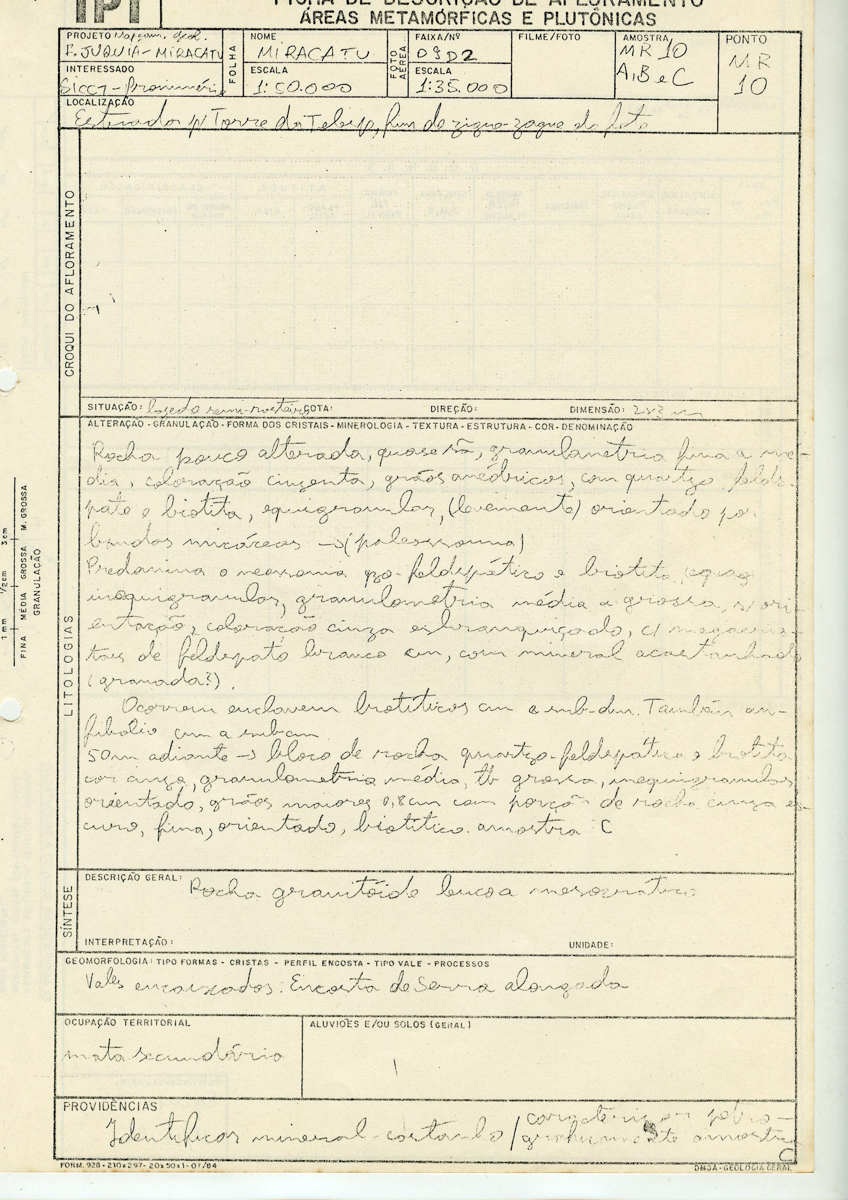 IPT
FICHA DE DESCRIÇÃO DE AFLORAMENTO
ÁREAS METAMÓRFICAS E PLUTÔNICAS
PROJETO Mapeam. Geol.
F. JUQUIÁ - MIRACATU
INTERESSADO
SICCT - Prominério
FOLHA
NOME
MIRACATU
ESCALA
1:50.000
FOTO AÉREA
FAIXA/Nº
09D2
ESCALA
1:35.000
FILME/FOTO
AMOSTRA
MR 10
A, B e C
PONTO
MR
10
LOCALIZAÇÃO
Estrada p/ Torre da Telesp, fim de zigue-zague da foto
CROQUI DO AFLORAMENTO
SITUAÇÃO: COTA: DIREÇÃO: DIMENSÃO: 2x3 m
ALTERAÇÃO - GRANULAÇÃO - FORMA DOS CRISTAIS - MINEROLOGIA - TEXTURA - ESTRUTURA - COR - DENOMINAÇÃO
LITOLOGIAS
Rocha pouco alterada, quase sã, granulometria fina a mé-
dia, coloração cinzenta, grãos anédricos, com quartzo, felds-
pato e biotita, equigranular, (levemente) orientado por
bandas micáceas → (paleossoma)
Predomina o neossoma qzo-feldspático e biotita,
inequigranular, granulometria média a grossa, s/ ori-
entação, coloração cinza esbranquiçado, c/ megacris-
tais de feldspato branco cm, com mineral acastanhado
(granada?).
Ocorrem enclaves biotíticos cm a sub-dm. Também an-
fibólio cm a subcm
50m adiante → bloco de rocha quartzo-feldspática e biotita
cor cinza, granulometria média, tb grossa, inequigranular
orientado, grãos maiores 0,8cm com porção de rocha cinza es-
curo, fina, orientado, biotítico. amostra C
1mm 1/2cm 3cm
FINA MÉDIA GROSSA M. GROSSA
GRANULAÇÃO
SÍNTESE
DESCRIÇÃO GERAL:
Rocha granitóide leuco a mesocrática
INTERPRETAÇÃO: UNIDADE:
GEOMORFOLOGIA: TIPO FORMAS - CRISTAS - PERFIL ENCOSTA - TIPO VALE - PROCESSOS
Vales encaixados. Encosta de Serra alongada
OCUPAÇÃO TERRITORIAL
mata secundária
ALUVIÕES E/OU SOLOS (GERAL)
PROVIDÊNCIAS
Identificar mineral castanho / caracterizar petro-
graficamente amostra
C
FORM. 928 - 210x297 - 20x50x1 - 07/84
DMGA - GEOLOGIA GERAL